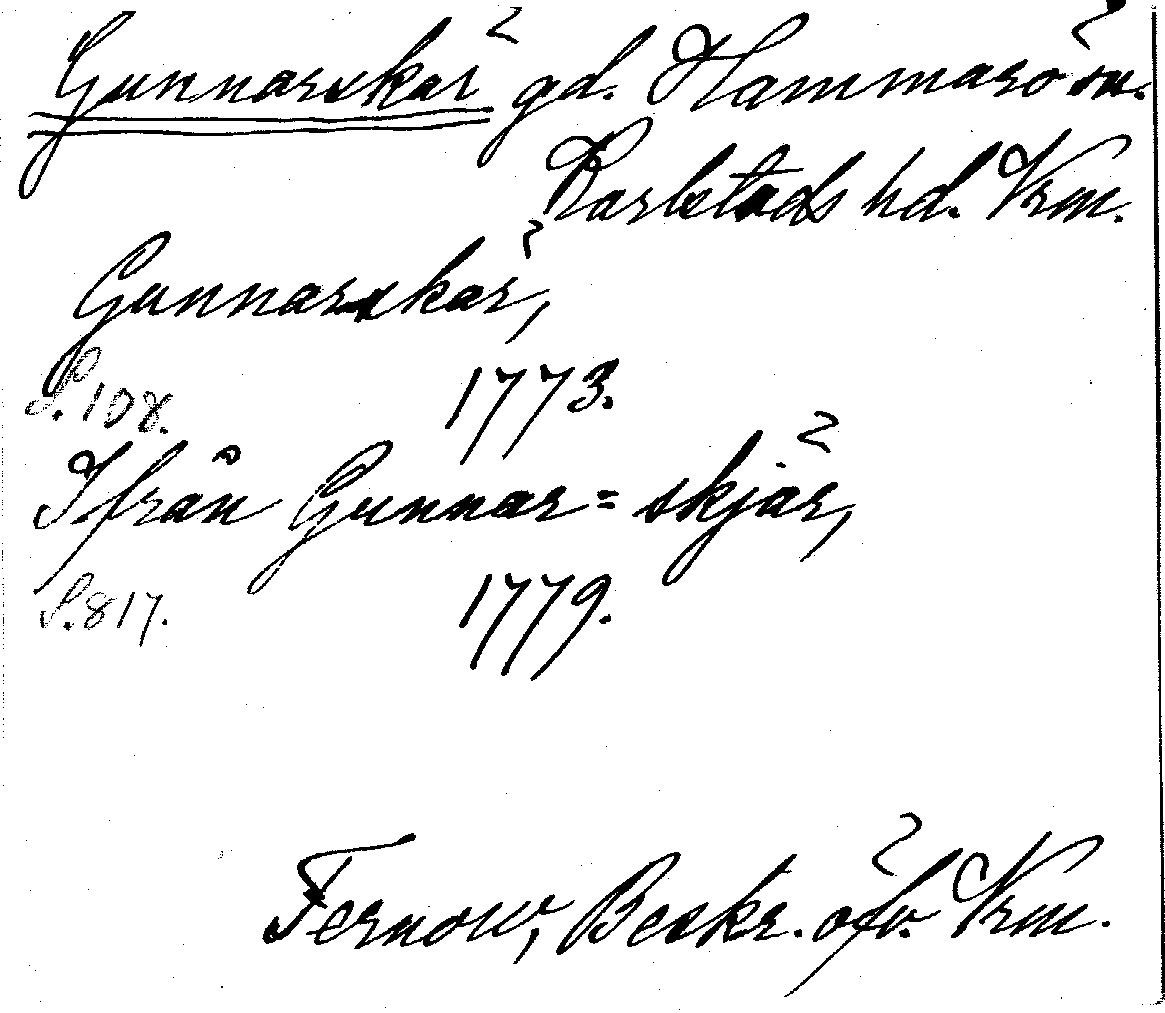 Gunnarskär gd. Hammarö sn.
Karlstads hd. Vrm.
Gunnarskär,
S. 108. 1773.
Ifrån Gunnar=skjär,
S. 817. 1779.
Fernow, Beskr. öfv. Vrm.